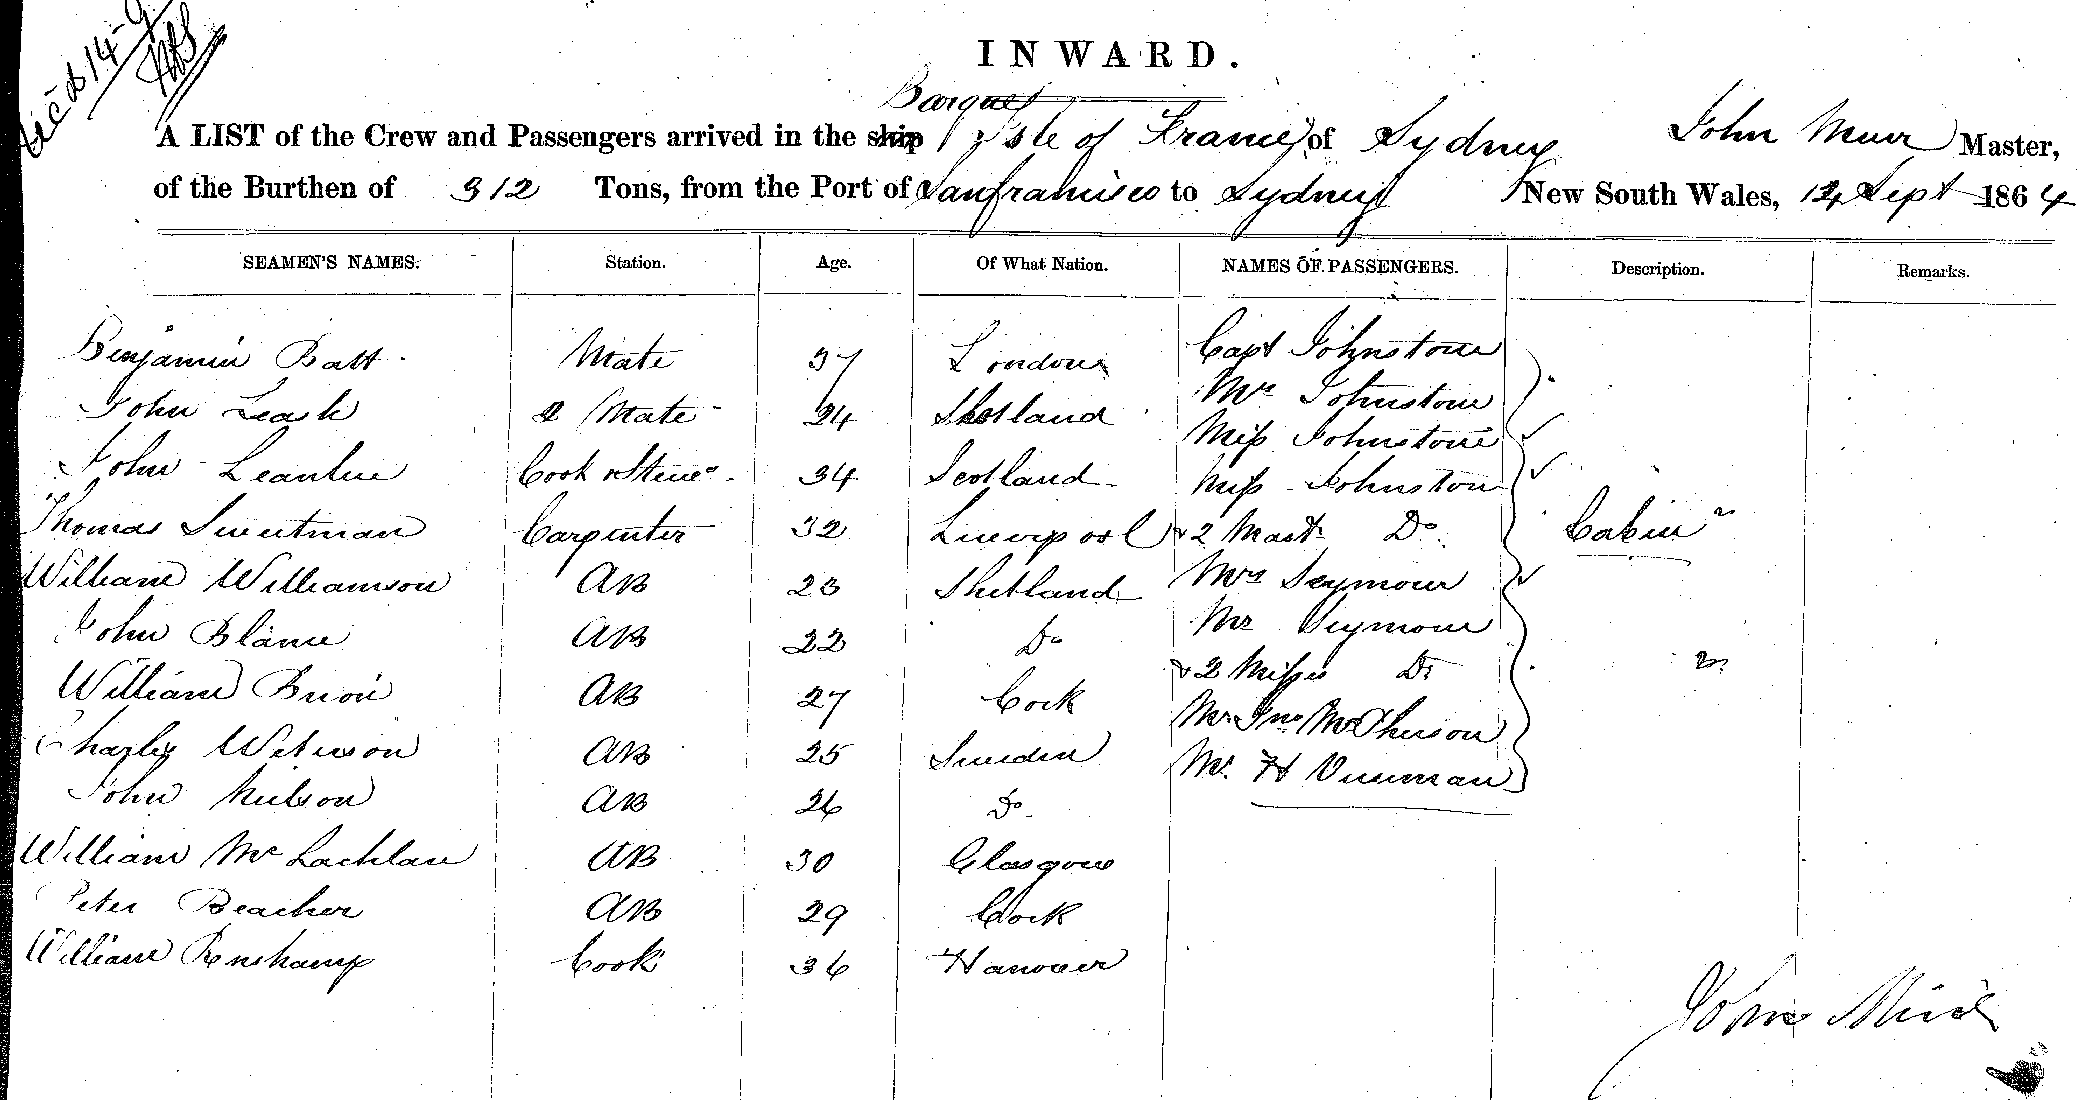 Recd 14-9
INWARD.
Barque
A LIST of the Crew and Passengers arrived in the ship Isle of France of Sydney John Muir Master,
of the Burthen of 312 Tons, from the Port of Sanfrancisco to Sydney New South Wales, 14 Sept 1864
SEAMEN'S NAMES. Station. Age. Of What Nation. NAMES OF PASSENGERS. Description. Remarks.
Benjamin Batt Mate 37 London Capt Johnstone
Mrs Johnstone
John Leask 2 Mate 24 Shetland Miss Johnstone
John Cook & Stewd 34 Scotland Miss Johnston
Thomas Sweetman Carpenter 32 Liverpool & 2 Mast. Do Cabin
William Williamson AB 23 Shetland Mrs Seymour
John Blance AB 22 Do Mr Seymour
& 2 Misses Do
William Brion AB 27 Cork Mr Jno McPherson
Charles AB 25 Sweden Mr. H
John Neilson AB 26 Do
William Mc Lachlan AB 30 Glasgow
Peter Beacher AB 29 Cork
William Cook 36 Hanover
John Muir